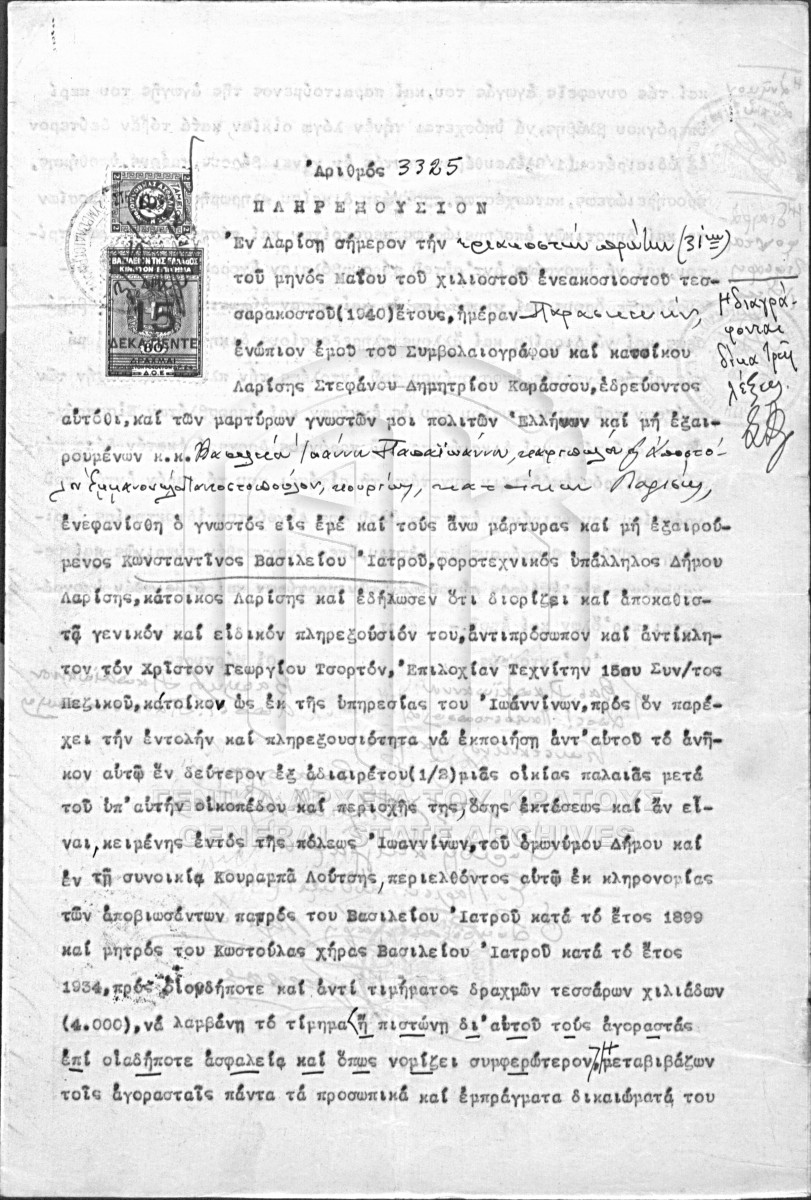 Ἀριθμός 3325
ΠΛΗΡΕΞΟΥΣΙΟΝ
Ἐν Λαρίσῃ σήμερον τήν τριακοστήν πρώτην (31ην)
τοῦ μηνός Μαΐου τοῦ χιλιοστοῦ ἐνεακοσιοστοῦ τεσ-
σαρακοστοῦ(1940)ἔτους, ἡμέραν Παρασκευήν,
ἐνώπιον ἐμοῦ τοῦ Συμβολαιογράφου καί κατοίκου
Λαρίσης Στεφάνου Δημητρίου Καράσσου, ἑδρεύοντος
αὐτόθι, καί τῶν μαρτύρων γνωστῶν μοι πολιτῶν Ἑλλήνων καί μή ἐξαι-
ρουμένων κ.κ. Βασιλείου Ἰωάννου Παπαϊωάννου, καί Ἀποστό-
λου Ἐμμανουήλ κουρέως, κατοίκων Λαρίσης,
ἐνεφανίσθη ὁ γνωστός εἰς ἐμέ καί τούς ἄνω μάρτυρας καί μή ἐξαιρού-
μενος Κωνσταντῖνος Βασιλείου Ἰατροῦ, φοροτεχνικός ὑπάλληλος Δήμου
Λαρίσης, κάτοικος Λαρίσης καί ἐδήλωσεν ὅτι διορίζει καί ἀποκαθισ-
τᾷ γενικόν καί εἰδικόν πληρεξούσιόν του, ἀντιπρόσωπον καί ἀντίκλη-
τον τόν Χρῖστον Γεωργίου Τσορτόν, Ἐπιλοχίαν Τεχνίτην 15ου Συν/τος
Πεζικοῦ, κάτοικον ὡς ἐκ τῆς ὑπηρεσίας του Ἰωάννίνων, πρός ὅν παρέ-
χει τήν ἐντολήν καί πληρεξουσιότητα νά ἐκποιήσῃ ἀντ'αὐτοῦ τό ἀνῆ-
κον αὐτῷ ἕν δεύτερον ἐξ ἀδιαιρέτου(1/2)μιᾶς οἰκίας παλαιᾶς μετά
τοῦ ὑπ'αὐτήν οἰκοπέδου καί περιοχῆς της, ὅσης ἐκτάσεως καί ἄν εἶ-
ναι, κειμένης ἐντός τῆς πόλεως Ἰωαννίνων, τοῦ ὁμωνύμου Δήμου καί
ἐν τῇ συνοικίᾳ Κουραμπᾶ Λούτσης, περιελθόντος αὐτῷ ἐκ κληρονομίας
τῶν ἀποβιωσάντων πατρός του Βασιλείου Ἰατροῦ κατά τό ἔτος 1899
καί μητρός του Κωστούλας χήρας Βασιλείου Ἰατροῦ κατά τό ἔτος
1934, πρός οἱονδήποτε καί ἀντί τιμήματος δραχμῶν τεσσάρων χιλιάδων
(4.000), νά λαμβάνῃ τό τίμημα ἤ πιστώνῃ δι'αὐτοῦ τούς ἀγοραστάς
ἐπί οἱαδήποτε ἀσφαλείᾳ καί ὅπως νομίζει συμφερώτερον, μεταβιβάζων
τοῖς ἀγορασταῖς πάντα τά προσωπικά καί ἐμπράγματα δικαιώματά του
Η διαγρά-
φονται
δέκα τρεῖς
λέξεις.
ΒΑΣΙΛΕΙΟΝ ΤΗΣ ΕΛΛΑΔΟΣ
ΚΙΝΗΤΟΝ ΕΠΙΣΗΜΑ
15
ΔΕΚΑΠΕΝΤΕ
ΔΡΑΧΜΑΙ
ΓΕΝΙΚΑ ΑΡΧΕΙΑ ΤΟΥ ΚΡΑΤΟΥΣ
GENERAL STATE ARCHIVES